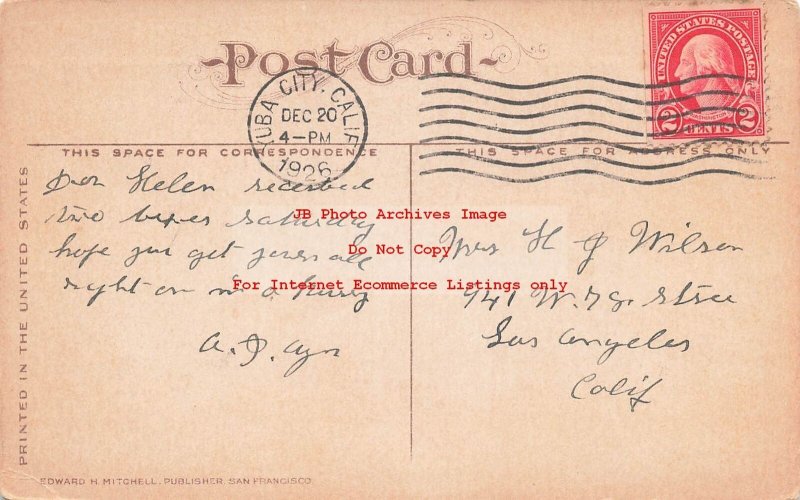 Post Card
YUBA CITY, CALIF.
DEC 20
4-PM
1926
UNITED STATES POSTAGE
WASHINGTON
2 CENTS 2
THIS SPACE FOR CORRESPONDENCE
THIS SPACE FOR ADDRESS ONLY
Dear Helen received
two boxes Saturday
hope you get yours all
right am in a hurry
A. D.
Mrs H J Wilson
941 W. St
Los Angeles
Calif
PRINTED IN THE UNITED STATES
EDWARD H. MITCHELL, PUBLISHER, SAN FRANCISCO.
JB Photo Archives Image
Do Not Copy
For Internet Ecommerce Listings only